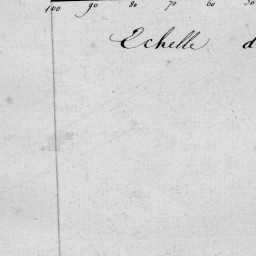 100 90 80 70 60 50
Echelle d